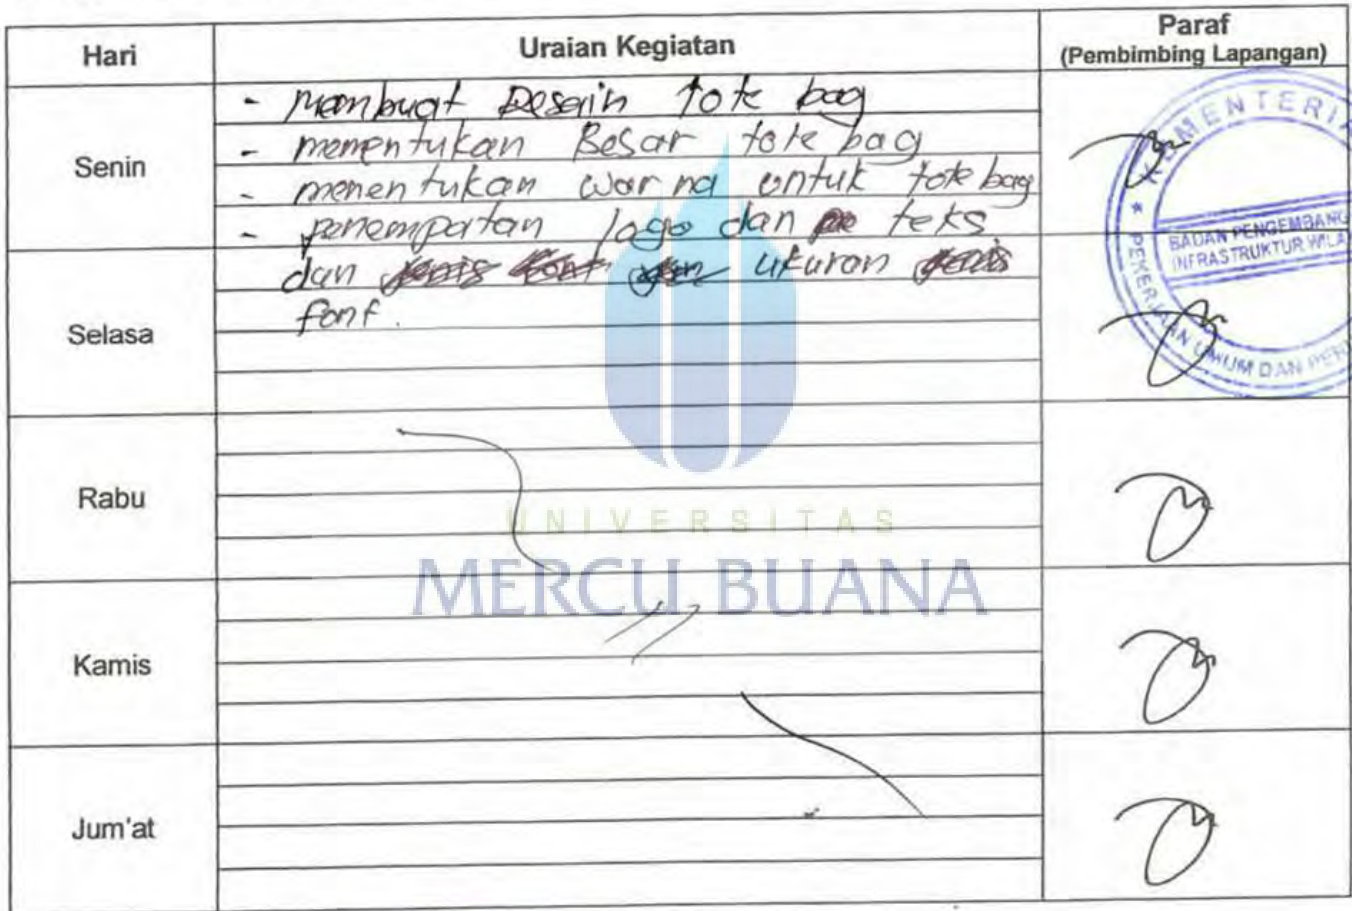 Hari Uraian Kegiatan Paraf
(Pembimbing Lapangan)
Senin
- membuat Desain tote bag
- menentukan Besar tote bag
- menentukan warna untuk tote bag
- penempatan logo dan teks
dan ukuran
font.
Selasa
Rabu
Kamis
Jum'at
KEMENTERIA
BADAN PENGEMBANG
INFRASTRUKTUR WILA
PEKERJAAN UMUM DAN PER
UNIVERSITAS
MERCU BUANA